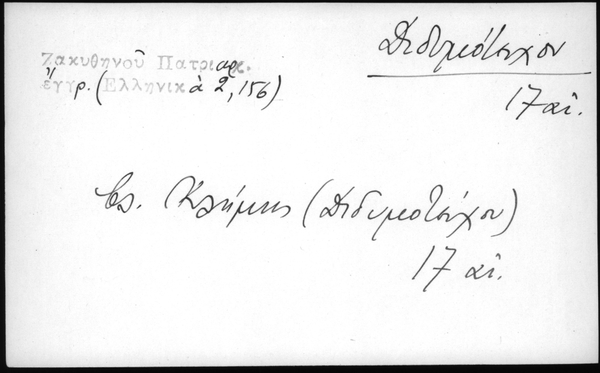 Ζακυθηνοῦ Πατριαρχ.
ἔγγρ. (Ἑλληνικὰ 2, 156)
Διδυμότειχον
17 αἰ.
βλ. Κλήμης (Διδυμοτείχου)
17 αἰ.